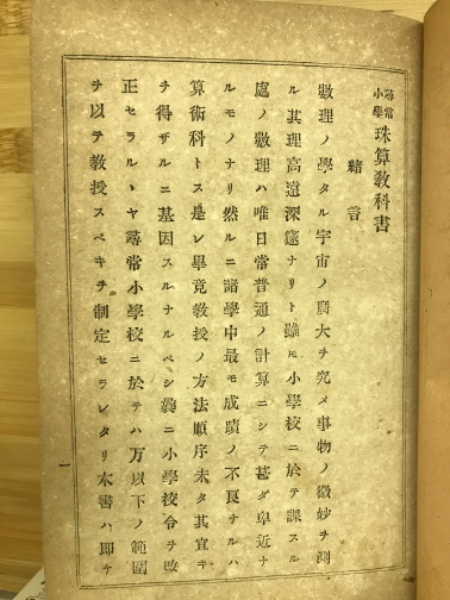 尋常小學珠算教科書
緖言
數理ノ學タル宇宙ノ廣大ヲ究メ事物ノ微妙ヲ測
ル其理高遠深邃ナリト雖モ小學校ニ於テ課スル
處ノ數理ハ唯日常普通ノ計算ニシテ甚ダ卑近ナ
ルモノナリ然ルニ諸學中最モ成蹟ノ不良ナルハ
算術科トス是レ畢竟教授ノ方法順序未タ其宜キ
ヲ得ザルニ基因スルナルベシ曩ニ小學校令ヲ改
正セラルヽヤ尋常小學校ニ於テハ万以下ノ範圍
ヲ以テ教授スベキヲ制定セラレタリ本書ハ即チ
一